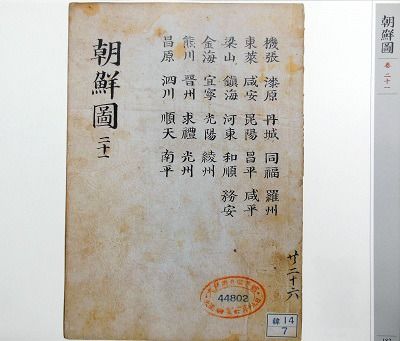 機張 漆原 丹城 同福 羅州
東萊 咸安 昆陽 昌平 咸平
梁山 鎭海 河東 和順 務安
金海 宜寧 光陽 綾州
熊川 晋州 求禮 光州
昌原 泗川 順天 南平
朝鮮圖 二十一
二十六
44802
韓 14
7
朝鮮圖 卷 二十一